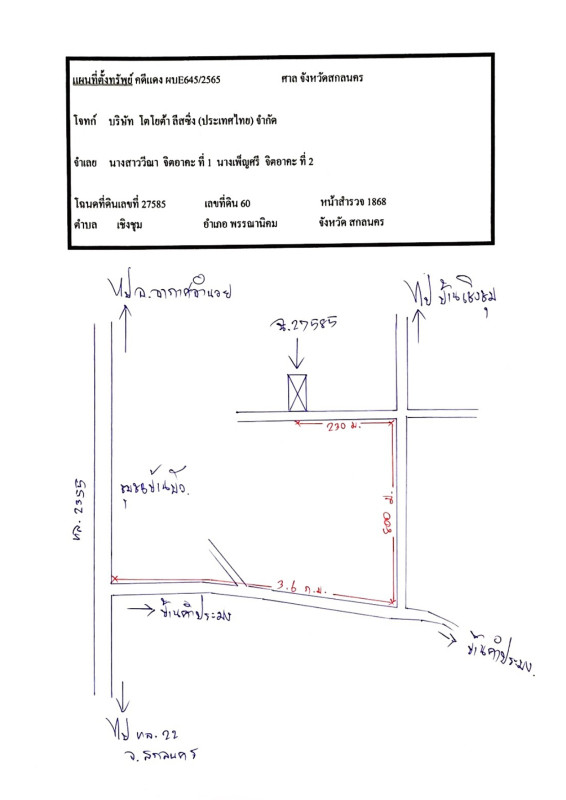 แผนที่ตั้งทรัพย์ คดีแดง ผบE645/2565 ศาล จังหวัดสกลนคร
โจทก์ บริษัท โตโยต้า ลีสซิ่ง (ประเทศไทย) จำกัด
จำเลย นางสาววีณา จิตอาคะ ที่ 1 นางเพ็ญศรี จิตอาคะ ที่ 2
โฉนดที่ดินเลขที่ 27585 เลขที่ดิน 60 หน้าสำรวจ 1868
ตำบล เชิงชุม อำเภอ พรรณานิคม จังหวัด สกลนคร
ไป อ.อากาศอำนวย
ไป บ้านเชิงชุม
ฉ.27585
230 ม.
ชุมชนบ้านบัว.
ทล. 2355
800 ม.
3.6 ก.ม.
บ้านคำประมง
บ้านคำประมง.
ไป ทล. 22
จ. สกลนคร